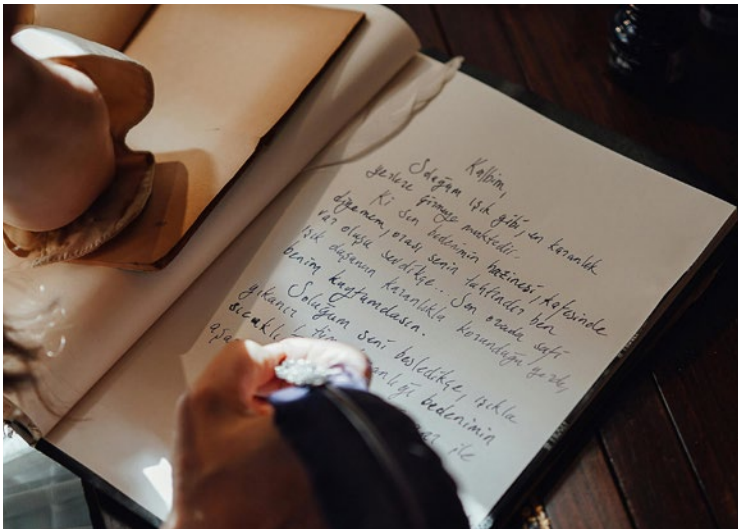 Kalbim,
Soluğum ışık gibi, en karanlık
yerlere girmeye muktedir.
Ki sen bedenimin hazinesi, kafesinde
diyemem, orası senin tahtındır ben
var oluşu sevdikçe.. Sen orada safi
ışık duşunun karanlıkla korunduğu yerde,
benim kaytumdasın.
Soluğum seni besledikçe, ışıkla
yıkanır tüm
bedenimin
sıcaklı
ile